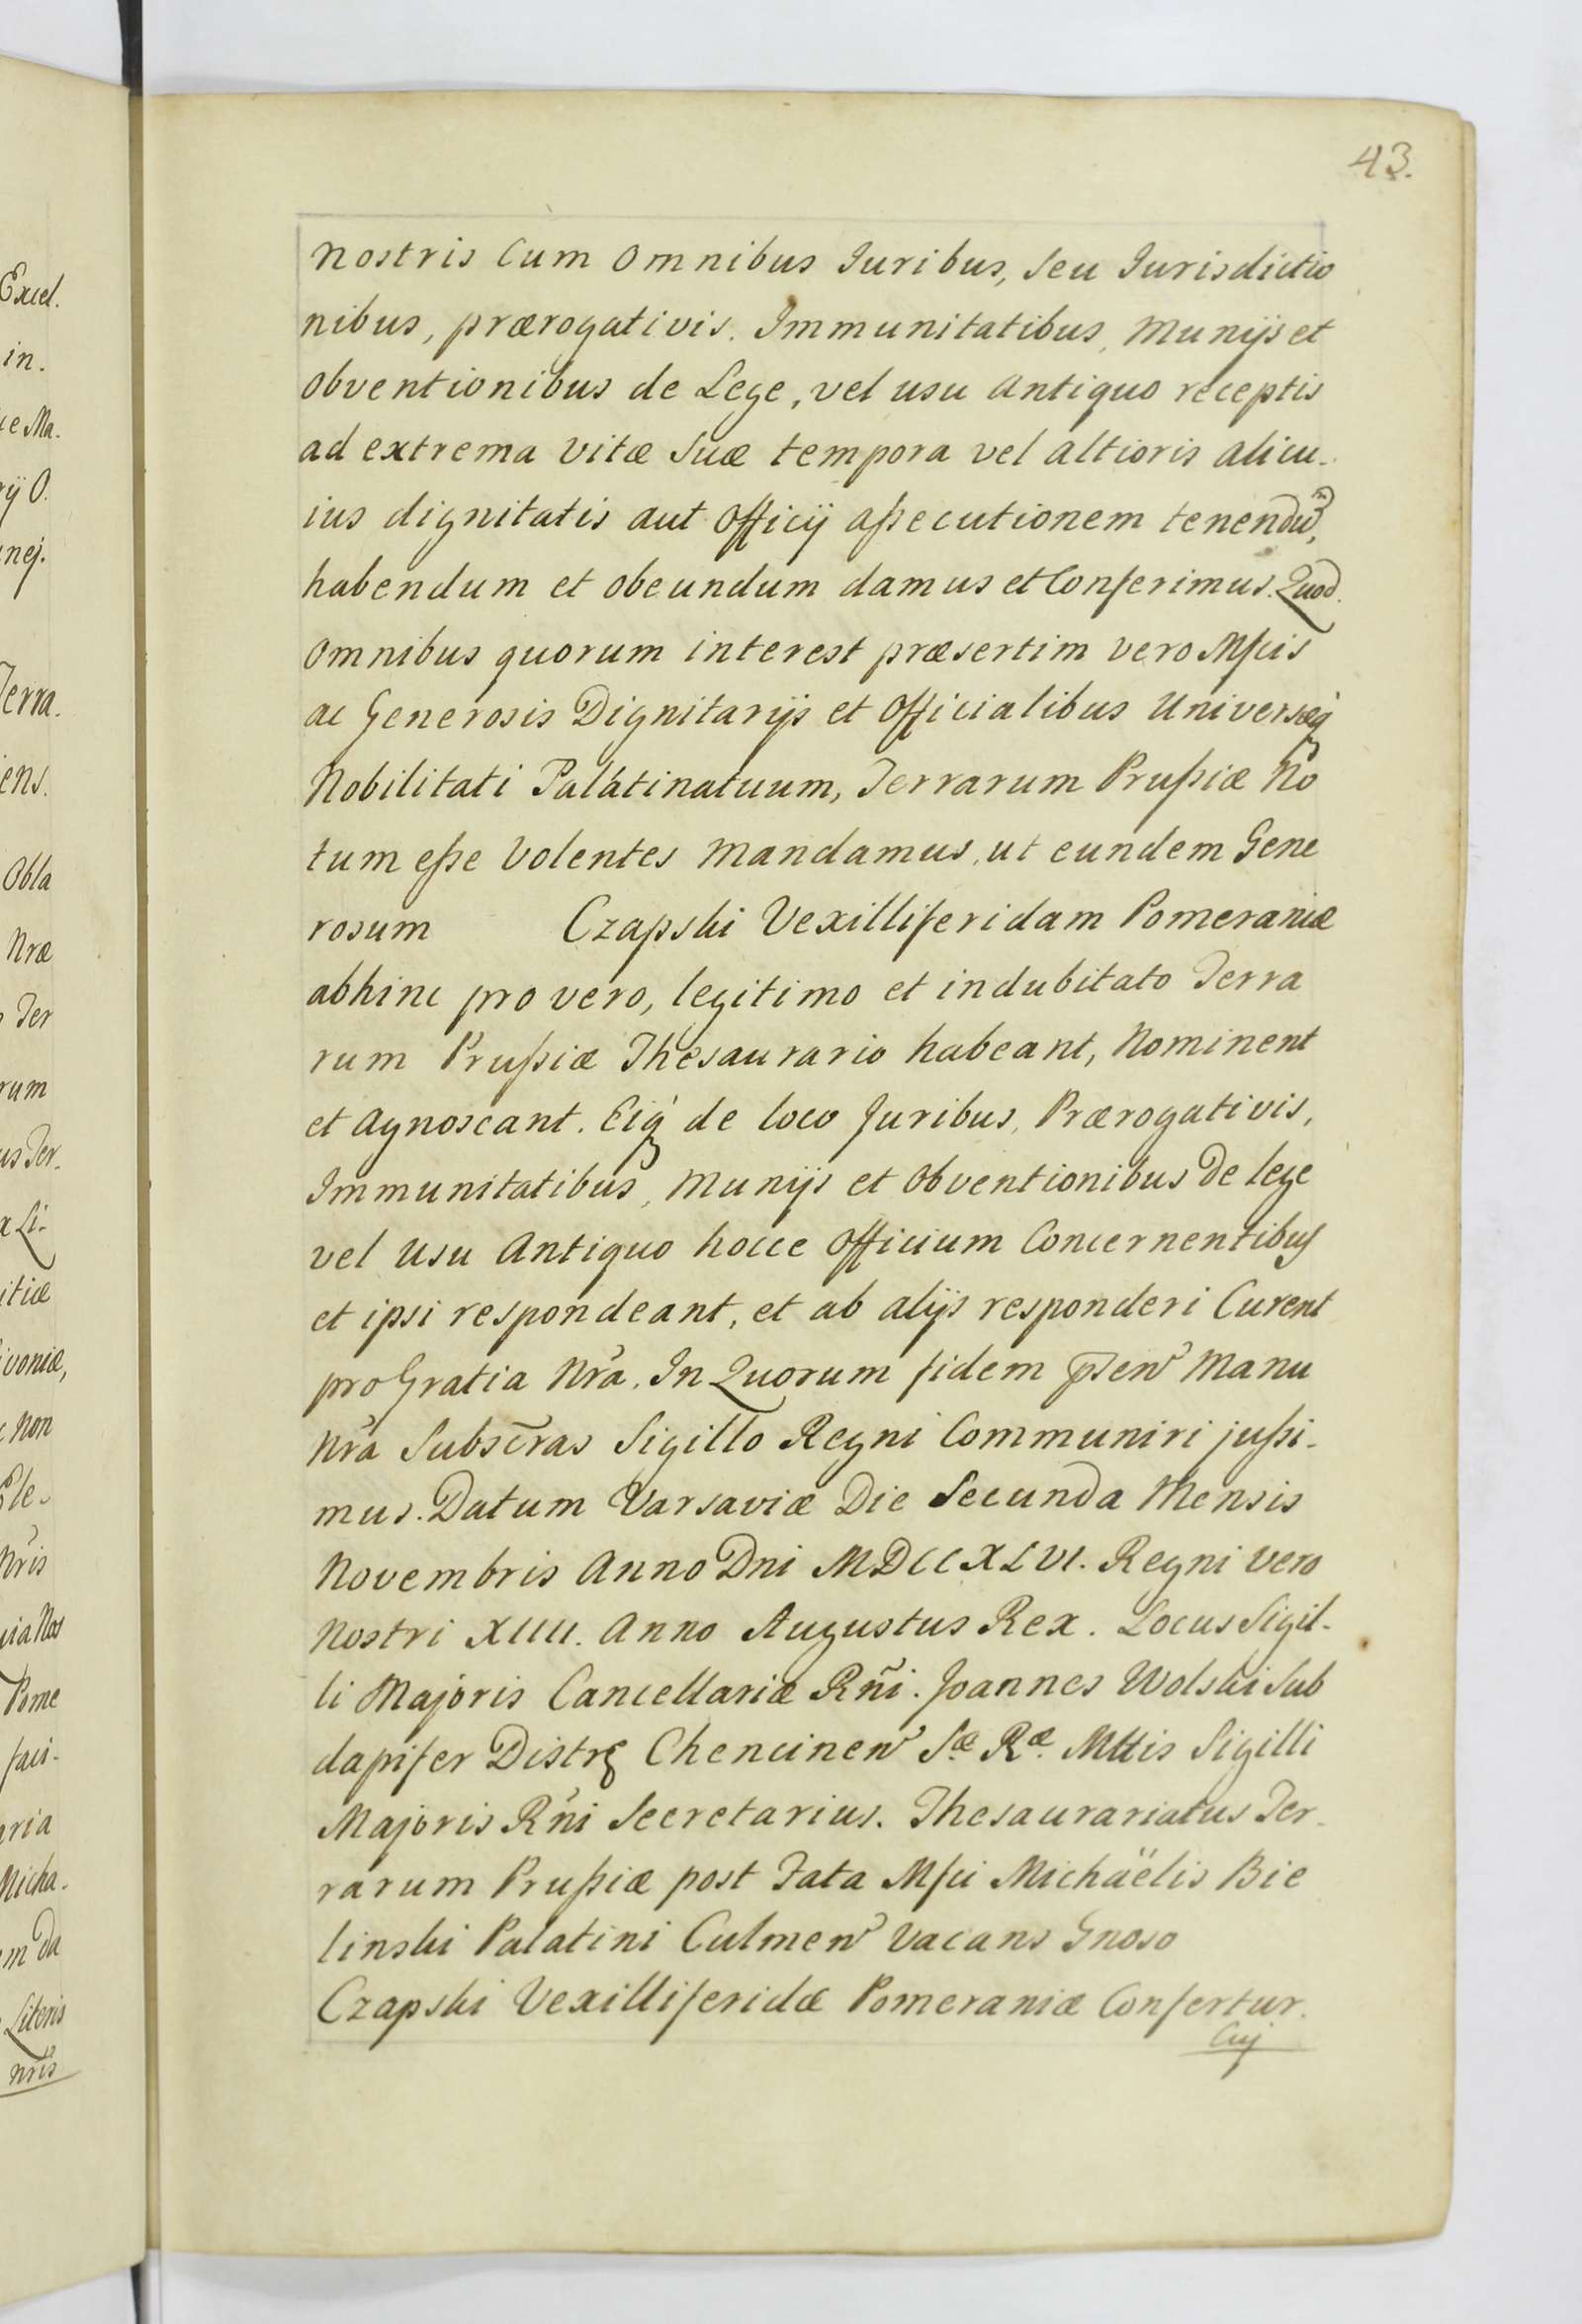 43.
Nostris Cum Omnibus Iuribus, seu Iurisdictio
nibus, prærogativis. Immunitatibus, Munijs et
Obventionibus de Lege, vel usu Antiquo receptis
ad extrema vitæ suæ tempora vel altioris alicu-
ius dignitatis aut Officij aßecutionem tenendũ,
habendum et obeundum damus et Conferimus. Quod
Omnibus quorum interest præsertim vero Mfcis
ac Generosis Dignitarijs et Officialibus Universæq́
Nobilitati Palatinatuum, Terrarum Prußiæ No
tum eße Volentes Mandamus, ut eundem Gene
rosum Czapski Vexilliferidam Pomeraniæ
abhinc pro vero, legitimo et indubitato Terra
rum Prußiæ Thesaurario habeant, Nominent
et Agnoscant. Eiq́ de loco Juribus, Prærogativis,
Immunitatibus, Munijs et Obventionibus De lege
vel Usu Antiquo hocce Officium Concernentibus
et ipsi respondeant, et ab alijs responderi Curent
pro Gratia Nrã. In Quorum fidem p̃sen Manu
Nrã Subscr̃as Sigillo Regni Communiri jußi-
mus. Datum Varsaviæ Die Secunda Mensis
Novembris Anno Dni MDCCXLVI. Regni vero
Nostri XIIII. Anno Augustus Rex. Locus Sigil-
li Majoris Cancellariæ Rñi. Joannes Wolski Sub
dapifer Distr Chencinen Sæ Ræ. Mttis Sigilli
Majoris Rñi Secretarius. Thesaurariatus Ter-
rarum Prußiæ post Fata Mfci Michäelis Bie
linski Palatini Culmen Vacans Gnoso
Czapski Vexilliferidæ Pomeraniæ Confertur.
Cuj
Excel.
in.
ie Ma.
rij O.
nej.
Terra.
iens.
Obla
Nræ
Ter
rum
us Ter.
x Li-
itiæ
ivoniæ,
c Non
Ele-
Nr̃is
uia Nos
Pome
faci-
aria
Micha-
m Da
Literis
nr̃is